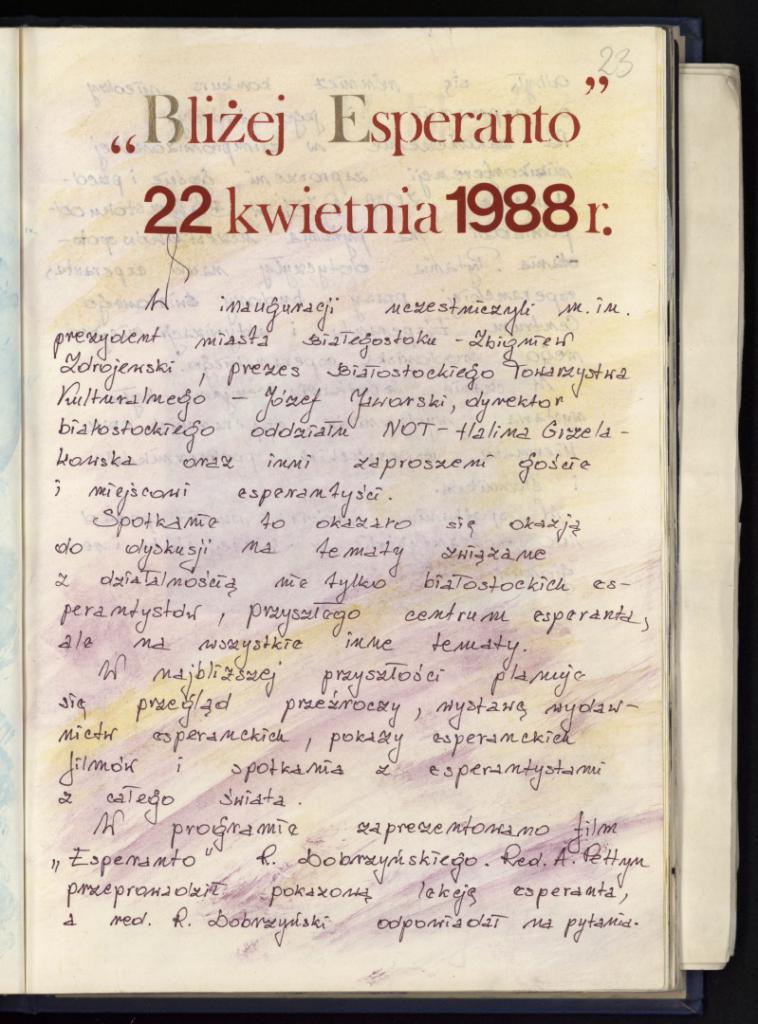 23
„Bliżej Esperanto”
22 kwietnia 1988 r.
W inauguracji uczestniczyli m.in.
prezydent miasta Białegostoku - Zbigniew
Zdrojewski, prezes Białostockiego Towarzystwa
Kulturalnego - Józef Jaworski, dyrektor
białostockiego oddziału NOT - Halina Grzela-
kowska oraz inni zaproszeni goście
i miejscowi esperantyści.
Spotkanie to okazało się okazją
do dyskusji na tematy związane
z działalnością nie tylko białostockich es-
perantystów, przyszłego centrum esperanta,
ale na wszystkie inne tematy.
W najbliższej przyszłości planuje
się przegląd przeźroczy, wystawę wydaw-
nictw esperanckich, pokazy esperanckich
filmów i spotkania z esperantystami
z całego świata.
W programie zaprezentowano film
„Esperanto" R. Dobrzyńskiego. Red. A. Pettyn
przeprowadził pokazową lekcję esperanta,
a red. R. Dobrzyński odpowiadał na pytania.